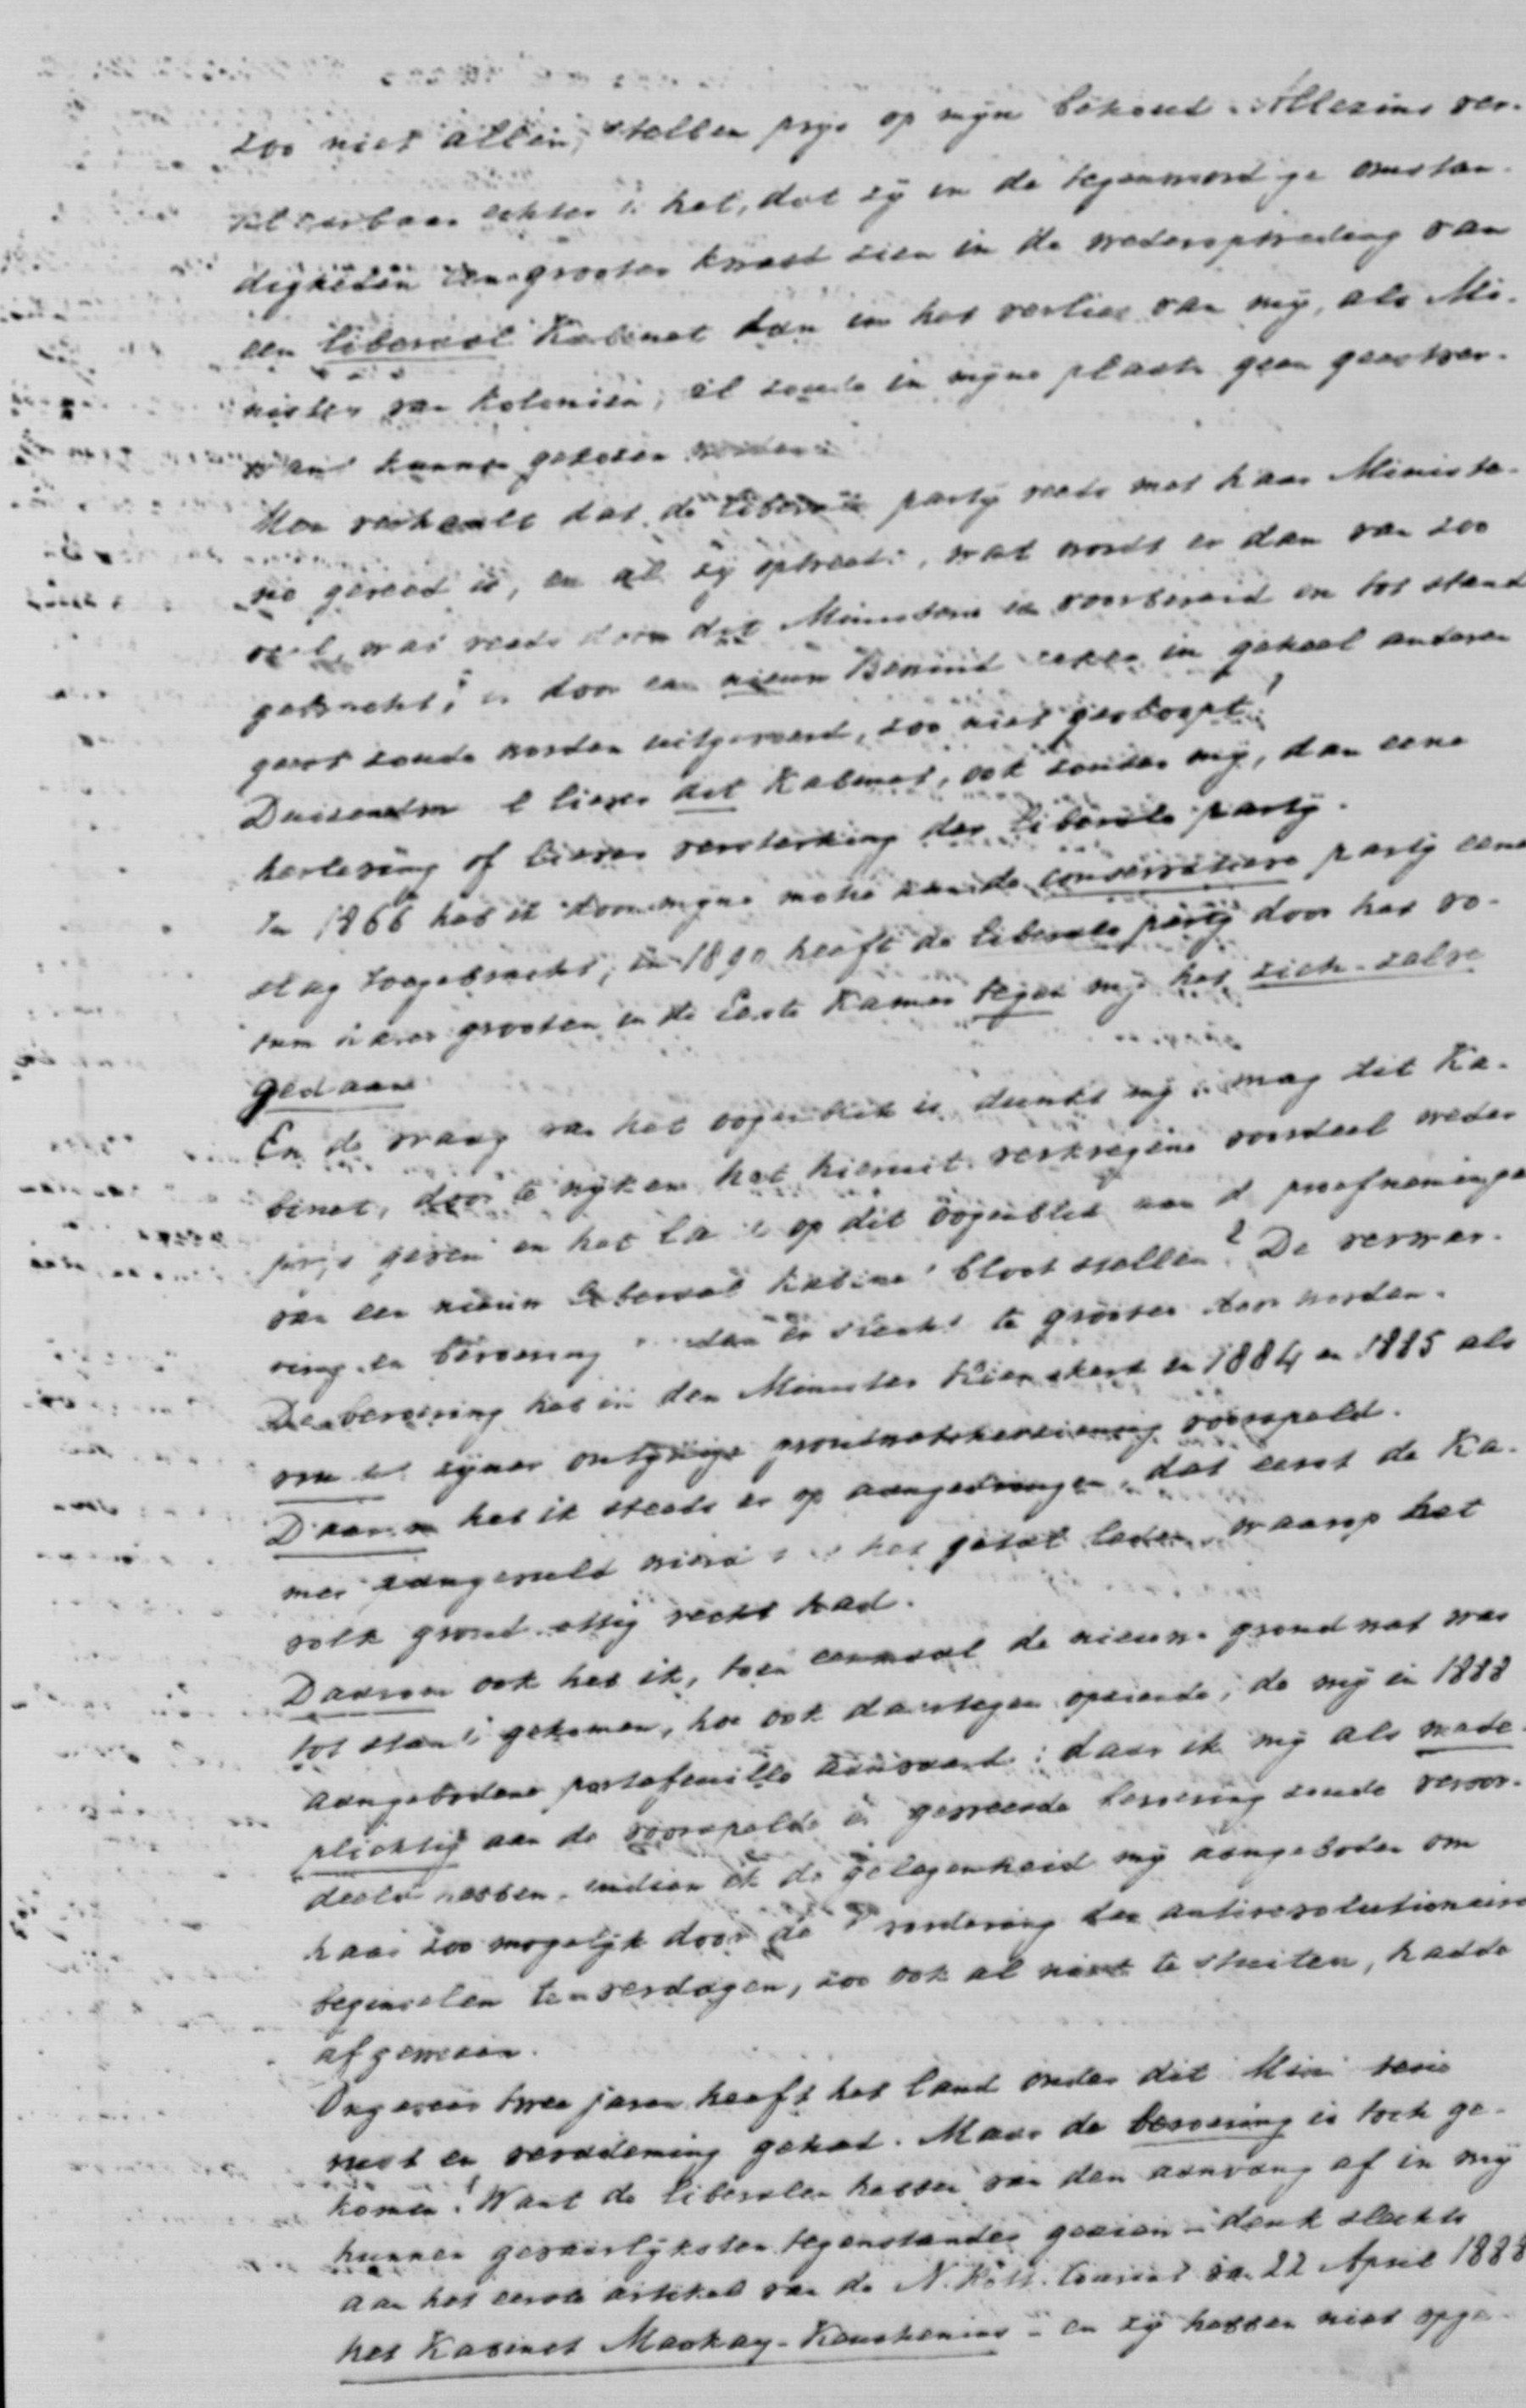 zoo niet allen, stellen prijs op mijn behoud. Alleszins ver-
echter is het, dat zij in de tegenwoordige omstan-
digheden een grooter kwaad zien in de wederoptreding van
een liberaal Kabinet dan in het verlies van mij, als Mi-
nister van Koloniën; al zoude in mijne plaats geen geestver-
want kunnen gekozen worden.
Men verhaalt dat de liberale partij reeds met haar Ministe-
rie gereed is, en als zij optreedt, wat wordt er dan van zoo
veel, wat reeds door dit Ministerie is voorbereid en tot stand
gebracht, door een nieuw Bewind zeker in geheel anderen
geest zoude worden uitgevoerd, zoo niet gesloopt!
Duizendm liever dit Kabinet, ook zonder mij, dan eene
herleving of liever versterking der liberale partij.
In 1866 heb ik door mijne motie aan de conservatieve partij eene
slag toegebracht; in 1890 heeft de liberale partij door het vo-
tum harer grooten in de Eerste Kamer tegen mij het zich-zelve
gedaan.
En de vraag van het oogenblik is dunkt mij: mag dit Ka-
binet, door te wijken het hieruit verkregene voordeel weder
prijs geven en het land op dit oogenblik aan de proefnemingen
van een nieuw liberaal Kabinet blootstellen? De verwar-
ring en beroering zouden er slechts te grooter door worden.
De beroering heb ik den Minister Heemskerk in 1884 en 1885 als
zijner ontijdige grondwetsherziening voorspeld.
Daarom heb ik steeds er op aangedrongen, dat eerst de Ka-
mer aangevuld wierd met het getal leden, waarop het
volk grondwettig recht had.
Daarom ook heb ik, toen eenmaal de nieuwe grondwet was
tot stand gekomen, hoe ook daartegen opziende, de mij in 1888
aangebodene portefeuille aanvaard: daar ik mij als mede-
plichtig aan de voorspelde en gevreesde beroering zoude veroor-
deeld hebben, indien ik de gelegenheid mij aangeboden om
haar zoo mogelijk door de vordering der antirevolutionaire
beginselen te verdagen, zoo ook al niet te stuiten, hadde
afgewezen.
Ongeveer twee jaren heeft het land onder dit Ministerie
rust en verademing gehad. Maar de beroering is toch ge-
komen! Want de liberalen hebben van den aanvang af in mij
hunnen gevaarlijksten tegenstander gezien - denk slechts
aan het eerste artikel van de N. Rott. Courant van 22 April 1888
het Kabinet Mackay-Keuchenius - en zij hebben niet opge-